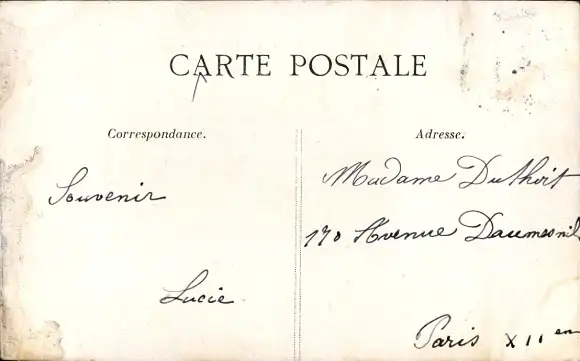 CARTE POSTALE
Correspondance.
Souvenir
Lucie
Adresse.
Madame Duthoit
170 Avenue Daumesnil
Paris XII en